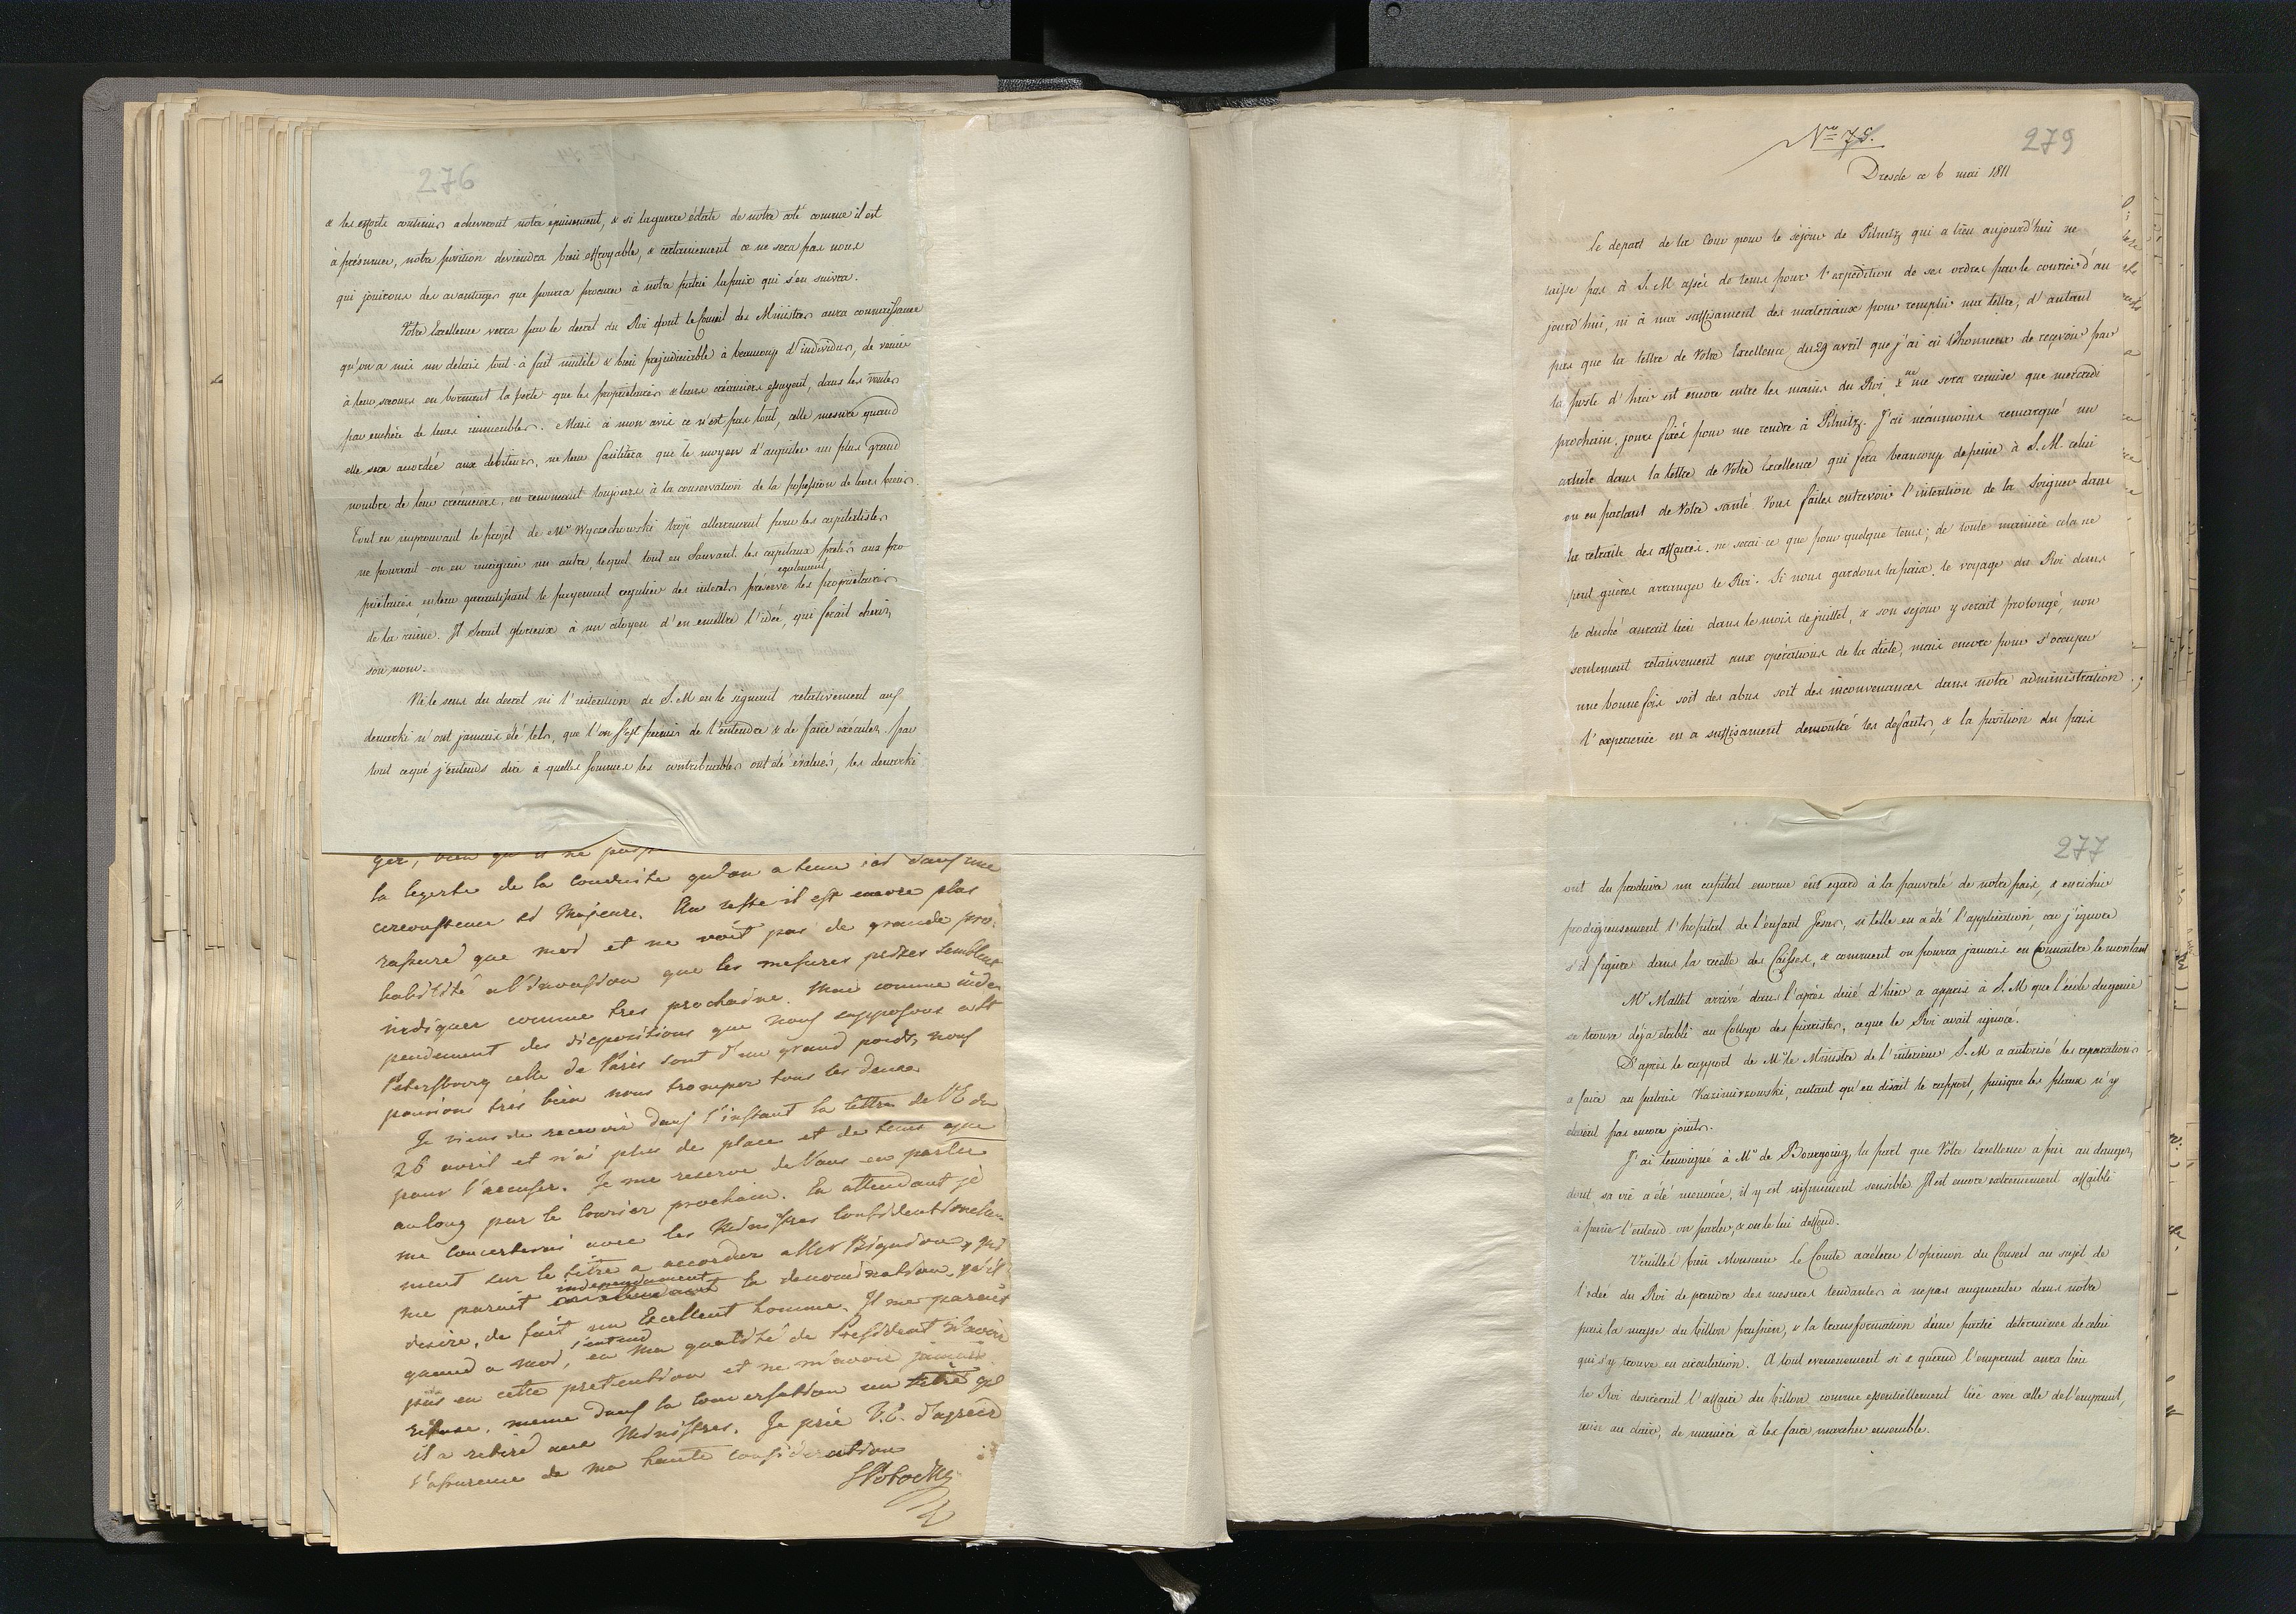 276
& les efforts continués acheveront notre épuisement, & si la guerre éclate de notre coté comme il est
à présumer, notre position deviendra bien effroyable, & certainement ce ne sera pas nous
qui jouirons des avantages que pourra procurer à notre patrie la paix qui s'en suivra.
Votre Excellence verra par le decret du Roi dont le Conseil des Ministres aura connaissance
qu'on a mis un delais tout-à fait inutile & bien prejudiciable à beaucoup d'individus, de venir
à leur secours en bornant la perte que les propriétaires & leurs créanciers essuyent, dans les ventes
par enchère de leurs immeubles. Mais à mon avis ce n'est pas tout, cette mesure quand
elle sera accordée aux debiteurs, ne leur facilitera que le moyen d'acquiter un plus grand
nombre de leurs créanciers, en renonçant toujours à la conservation de la possession de leurs biens.
Tout en improuvant le projet de Mr Wyczechowski trop allarmant pour les capitalistes
ne pourrait-on en imaginer un autre, lequel tout en sauvant les capitaux pretés aux pro
priétaires, en leur garantissant le payement regulier des interets préserve également les propriétaires
de la ruine. Il serait glorieux à un citoyen d'en emettre l'idée, qui ferait cherir
son nom.
Ni le sens du decret ni l'intention de S. M en le signant relativement aux
dworki n'ont jamais été tels, que l'on s'est permis de l'entendre & de faire executer. par
tout ce que j'entends dire à quelles sommes les contribuables ont été évalués, les dworki
la legerte de la conduite qu'on a tenu ici dans une
circonstence si Majeure. Au reste il est encore plus
rassuré que moi et ne voit pas de grande pro-
babilité a l'invasion que les mesures prises semblent
indiquer comme tres prochaine. Mais comme inde-
pendement des dispositions que nous supposons a St
Petersbourg celle de Paris sont d'un grand poids, nous
pouvions très bien nous tromper tous les deux.
Je viens de recevoir dans l'instant la lettre de V E du
26 avril et n'ai plus de place et de tems que
pour l'accuser. Je me reserve de Vous en parler
au long par le courier prochain. En attendant je
me concerterai avec les Ministres confidentionelle-
ment sur le titre a accorder a Mr Bignon, qui
me parait independament la denomination qu'il
desire, de fait un Excellent homme. Il me parait
quand a moi, s'entend en ma qualité de President n'avoir
pas en cette pretention et ne m'avoir jamais
refuse, meme dans la conversation un titre qu'
il a retiré aux Ministres. Je prie V. E. d'agréer
l'assurence de ma haute consideration
SPotocki
279
Nro 75.
Dresde ce 6 mai 1811
Le depart de la Cour pour le séjour de Pilnitz qui a lieu aujourd'hui ne
laisse pas à S. M assés de tems pour l'expédition de ses ordres par le courier d'au
jourd'hui, ni à moi suffisament des materiaux pour remplir ma lettre, d'autant
pas que la lettre de Votre Excellence du 29 avril que j'ai eû l'honneur de reçevoir par
la poste d'hier est encore entre les mains du Roi, & ne me sera remise que mercredi
prochain, jour fixés pour me rendre à Pilnitz. J'ai néanmoins remarqué un
article dans la lettre de Votre Excellence qui fera beaucoup de peine à S. M. celui
ou en parlant de Votre santé Vous faites entrevoir l'intention de la Soigner dans
la retraite des affaires. ne serai-ce que pour quelque tems; de toute manière cela ne
peut guères arranger le Roi. Si nous gardons la paix, le voyage du Roi dans
le duché aurait lieu dans le mois de juillet, & son sejour y serait prolongé, non
seulement relativement aux opérations de la diete, mais encore pour s'occuper
une bonne fois soit des abus soit des inconvenances dans notre administration;
l'experience en a suffisament demontré les defauts, & la position du païs
277
ont du produire un capital enorme eut egard à la pauvreté de notre païs, & enrichir
prodigieusement l'hopital de l'enfant Jesus, si telle en a été l'application, car j'ignore
s'il figure dans la recette des Caisses, & comment on pourra jamais en connaitre le montant
Mr Mallet arrivé dans l'après diné d'hier a appris à S. M que l'école du genie
se trouve déja etabli au College des piaristes, ce que le Roi avait ignoré.
D'après le rapport de Mr le Ministre de l'interieur S. M a autorisé les reparations
a faire au palais Kazimirowski, autant qu'en disait le rapport, puisque les plans n'y
etaient pas encore joints.
J'ai temoigné à Mr de Bourgoing la part que Votre Excellence a pris au danger,
dont sa vie a été menacée, il y est infiniment sensible. Il est encore extremement affaibli
à peine l'entend on parler, & on le lui deffend.
Veuilléz bien Monsieur le Comte accélerer l'opinion du Conseil au sujet de
l'idée du Roi de prendre des mesures tendantes à ne pas augmenter dans notre
païs la masse du billon prussien, & la transformation d'une partie determinée de celui
qui s'y trouve en circulation. A tout evenement si & quand l'emprunt aura lieu
le Roi desirerait l'affaire du billon comme essentiellement liée avec celle de l'emprunt,
mise au clair, de manière à les faire marcher ensemble.